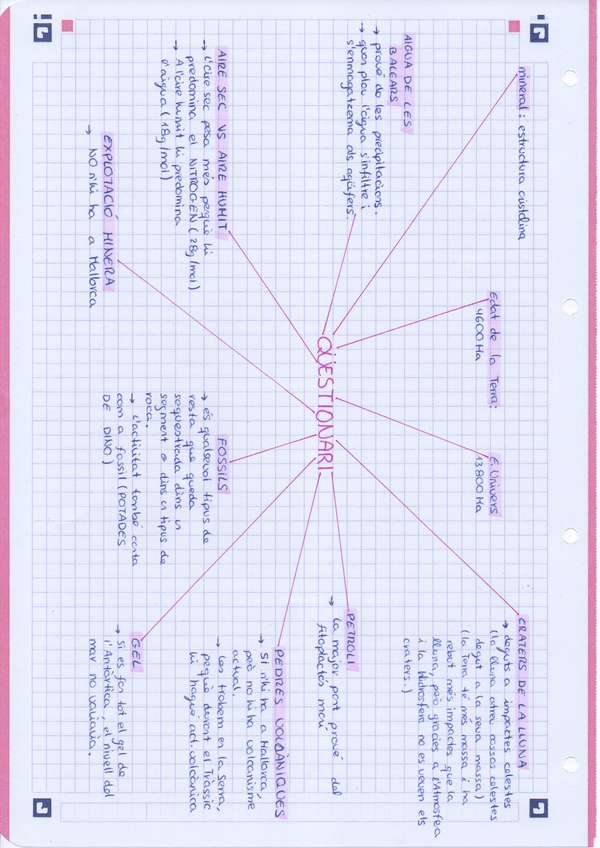 mineral: estructura cristal·lina
Edat de la Terra:
4600 Ma
E. Univers
13800 Ma
CRATERS DE LA LLUNA
→ deguts a impactes celestes
(la lluna atreu cossos celestes
degut a la seva massa)
(la Terra té més massa i ha
rebut més impactes que la
lluna, però gràcies a l'Atmosfera
i la Hidrosfera no es veuen els
craters.)
AIGUA DE LES
BALEARS
→ prové de les precipitacions.
→ quan plou l'aigua s'infiltre i
s'enmagatzema als aqüífers.
QÜESTIONARI
PETROLI
→ La major part prové del
fitoplactos marí
AIRE SEC VS AIRE HUMIT
→ L'aire sec pesa més perquè hi
predomina el NITROGEN (28g/mol)
→ A l'aire humit hi predomina
l'aigua (18g/mol)
FOSSILS
→ és qualsevol tipus de
resta que queda
sequestrada dins un
segment o dins un tipus de
roca.
→ L'activitat també conta
com a fossil (POTADES
DE DINO)
PEDRES VOLCÀNIQUES
→ SI n'hi ha a Mallorca,
però no hi ha volcanisme
actual.
→ Les trobem en la Serra,
perquè durant el Triàssic
hi hague act. volcànica
EXPLOTACIÓ MINERA
→ NO n'hi ha a Mallorca
GEL
→ Si es fos tot el gel de
l'Antàrtica, el nivell del
mar no variaria.